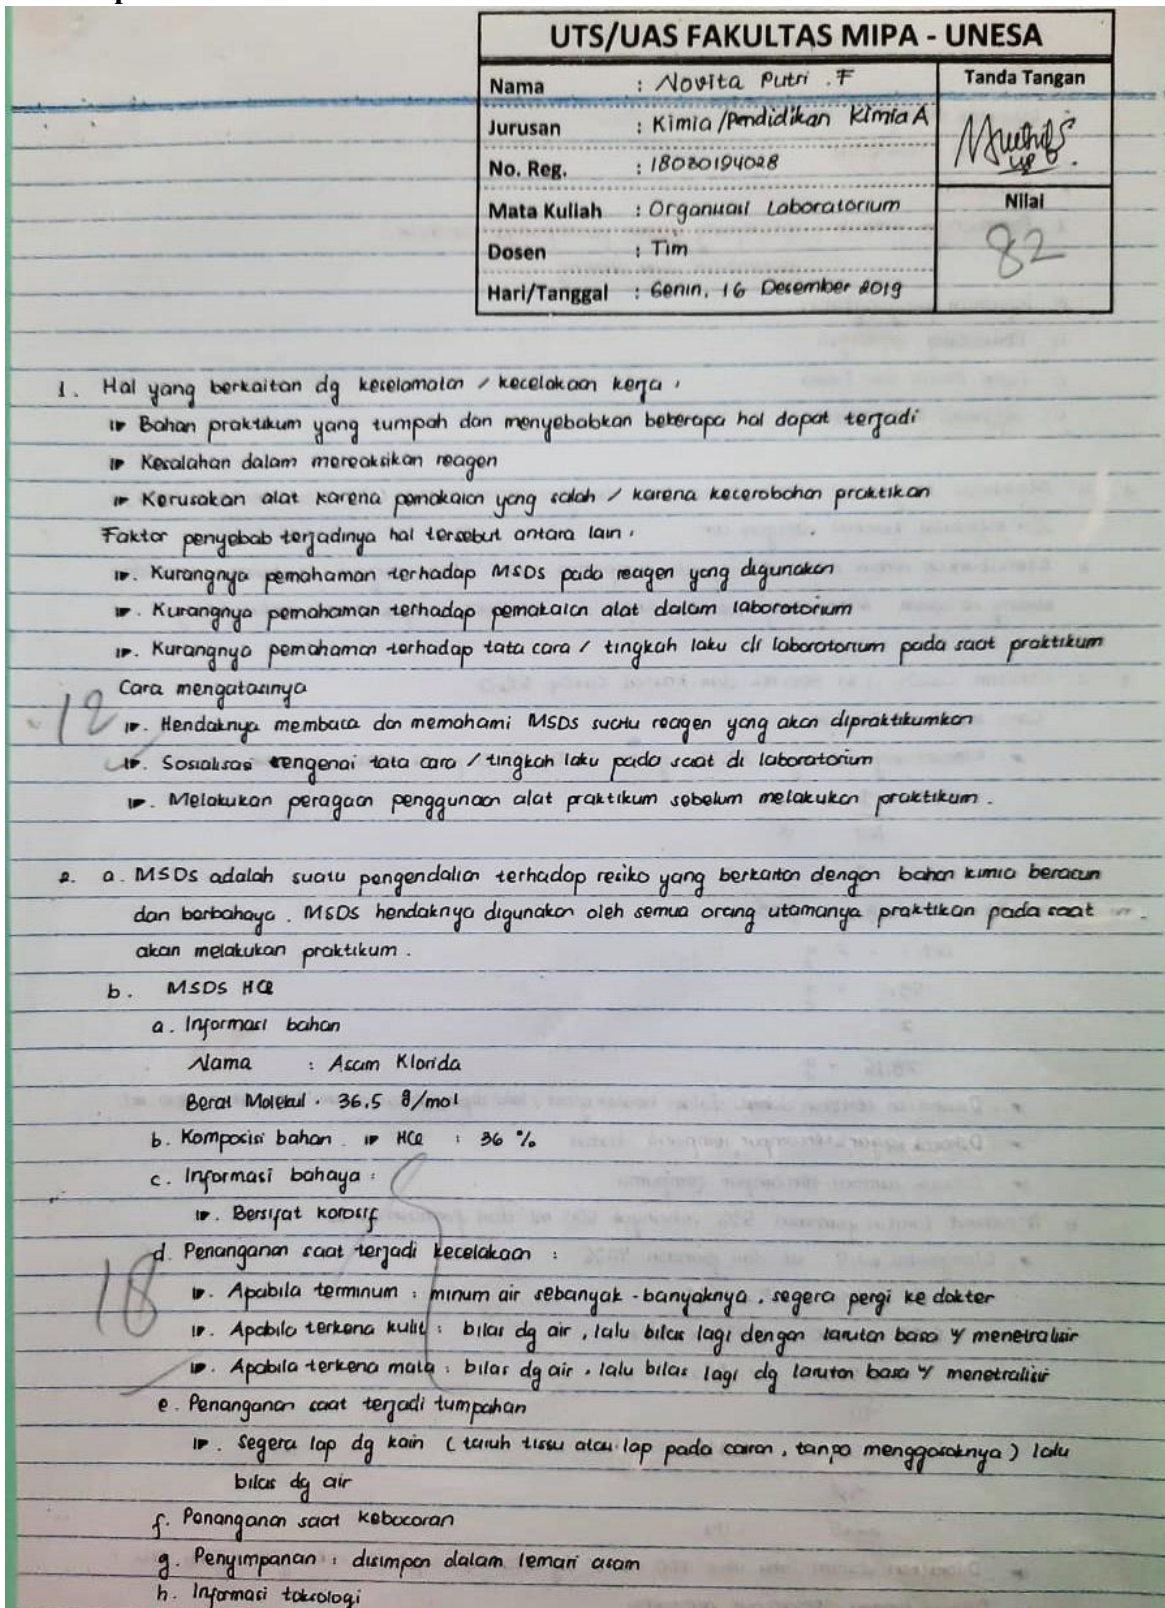 UTS/UAS FAKULTAS MIPA - UNESA
Nama : Novita Putri .F
Tanda Tangan
Jurusan : Kimia/Pendidikan Kimia A
No. Reg. : 18030194028
Mata Kuliah : Organisasi Laboratorium
Nilai
82
Dosen : Tim
Hari/Tanggal : Senin, 16 Desember 2019
1. Hal yang berkaitan dg keselamatan / kecelakaan kerja :
Bahan praktikum yang tumpah dan menyebabkan beberapa hal dapat terjadi
Kesalahan dalam mereaksikan reagen
Kerusakan alat karena pemakaian yang salah / karena kecerobohan praktikan
Faktor penyebab terjadinya hal tersebut antara lain :
Kurangnya pemahaman terhadap MSDs pada reagen yang digunakan
Kurangnya pemahaman terhadap pemakaian alat dalam laboratorium
Kurangnya pemahaman terhadap tata cara / tingkah laku di laboratorium pada saat praktikum
Cara mengatasinya
12
Hendaknya membaca dan memahami MSDs suatu reagen yang akan dipraktikumkan
Sosialisasi mengenai tata cara / tingkah laku pada saat di laboratorium
Melakukan peragaan penggunaan alat praktikum sebelum melakukan praktikum.
2. a. MSDs adalah suatu pengendalian terhadap resiko yang berkaitan dengan bahan kimia beracun
dan berbahaya. MSDS hendaknya digunakan oleh semua orang utamanya praktikan pada saat
akan melakukan praktikum.
b. MSDS HCl
a. Informasi bahan
Nama : Asam Klorida
Berat Molekul : 36,5 g/mol
b. Komposisi bahan HCl : 36 %
c. Informasi bahaya :
Bersifat korosif
d. Penanganan saat terjadi kecelakaan :
18
Apabila terminum : minum air sebanyak-banyaknya, segera pergi ke dokter
Apabila terkena kulit : bilas dg air, lalu bilas lagi dengan larutan basa y/ menetralisir
Apabila terkena mata : bilas dg air, lalu bilas lagi dg larutan basa y/ menetralisir
e. Penanganan saat terjadi tumpahan
Segera lap dg kain (taruh tissu atau lap pada cairan, tanpa menggosoknya) lalu
bilas dg air
f. Penanganan saat kebocoran
g. Penyimpanan : disimpan dalam lemari asam
h. Informasi toksologi